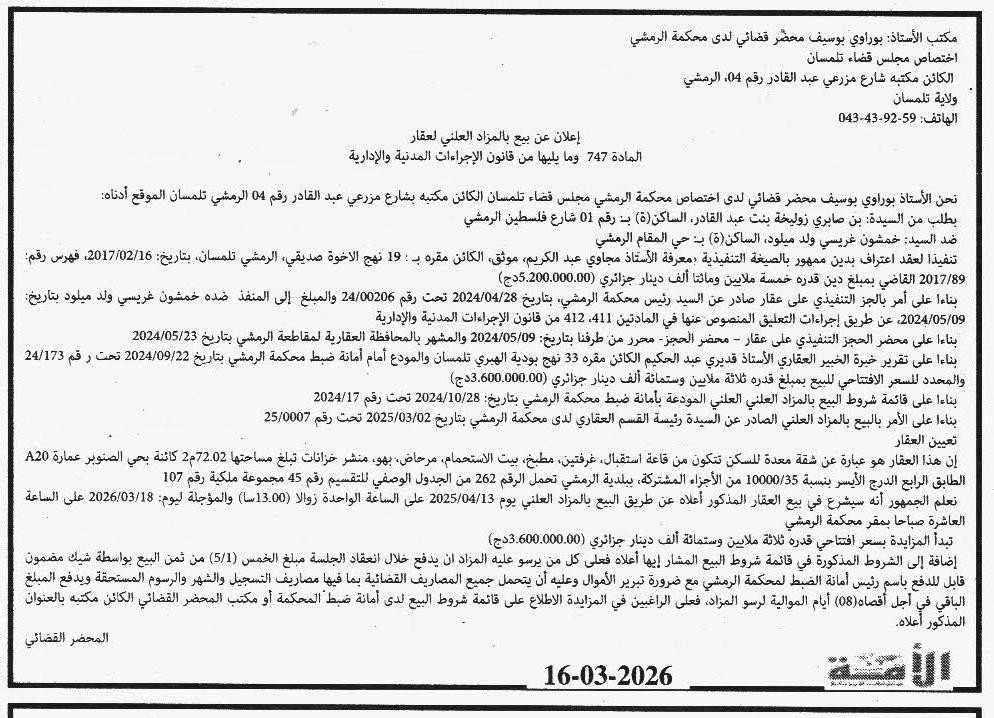 مكتب الأستاذ: بوراوي بوسيف محضر قضائي لدى محكمة الرمشي
اختصاص مجلس قضاء تلمسان
الكائن مكتبه شارع مزرعي عبد القادر رقم 04، الرمشي
ولاية تلمسان
الهاتف: 59-92-43-043
إعلان عن بيع بالمزاد العلني لعقار
المادة 747 وما يليها من قانون الإجراءات المدنية والإدارية
نحن الأستاذ بوراوي بوسيف محضر قضائي لدى اختصاص محكمة الرمشي مجلس قضاء تلمسان الكائن مكتبه بشارع مزرعي عبد القادر رقم 04 الرمشي تلمسان الموقع أدناه:
بطلب من السيدة: بن صابري زوليخة بنت عبد القادر، الساكن(ة) بـ: رقم 01 شارع فلسطين الرمشي
ضد السيد: خمشون غريسي ولد ميلود، الساكن(ة) بـ: حي المقام الرمشي
تنفيذا لعقد اعتراف بدين ممهور بالصيغة التنفيذية بمعرفة الأستاذ مجاوي عبد الكريم، موثق، الكائن مقره بـ : 19 نهج الاخوة صديقي، الرمشي تلمسان، بتاريخ: 2017/02/16، فهرس رقم:
2017/89 القاضي بمبلغ دين قدره خمسة ملايين ومائتا ألف دينار جزائري (5.200.000.00دج)
بناءا على أمر بالجز التنفيذي على عقار صادر عن السيد رئيس محكمة الرمشي، بتاريخ 2024/04/28 تحت رقم 24/00206 والمبلغ إلى المنفذ ضده خمشون غريسي ولد ميلود بتاريخ:
2024/05/09، عن طريق إجراءات التعليق المنصوص عنها في المادتين 411، 412 من قانون الإجراءات المدنية والإدارية
بناءا على محضر الحجز التنفيذي على عقار – محضر الحجز- محرر من طرفنا بتاريخ: 2024/05/09 والمشهر بالمحافظة العقارية لمقاطعة الرمشي بتاريخ 2024/05/23
بناءا على تقرير خبرة الخبير العقاري الأستاذ قديري عبد الحكيم الكائن مقره 33 نهج بودية الهبري تلمسان والمودع أمام أمانة ضبط محكمة الرمشي بتاريخ 2024/09/22 تحت ر قم 24/173
والمحدد للسعر الافتتاحي للبيع بمبلغ قدره ثلاثة ملايين وستمائة ألف دينار جزائري (3.600.000.00دج)
بناءا على قائمة شروط البيع بالمزاد العلني العلني المودعة بأمانة ضبط محكمة الرمشي بتاريخ: 2024/10/28 تحت رقم 2024/17
بناءا على الأمر بالبيع بالمزاد العلني الصادر عن السيدة رئيسة القسم العقاري لدى محكمة الرمشي بتاريخ 2025/03/02 تحت رقم 25/0007
تعيين العقار
إن هذا العقار هو عبارة عن شقة معدة للسكن تتكون من قاعة استقبال، غرفتين، مطبخ، بيت الاستحمام، مرحاض، بهو، منشر خزانات تبلغ مساحتها 72.02م2 كائنة بحي الصنوبر عمارة A20
الطابق الرابع الدرج الأيسر بنسبة 10000/35 من الأجزاء المشتركة، ببلدية الرمشي تحمل الرقم 262 من الجدول الوصفي للتقسيم رقم 45 مجموعة ملكية رقم 107
نعلم الجمهور أنه سيشرع في بيع العقار المذكور أعلاه عن طريق البيع بالمزاد العلني يوم 2025/04/13 على الساعة الواحدة زوالا (13.00سا) والمؤجلة ليوم: 2026/03/18 على الساعة
العاشرة صباحا بمقر محكمة الرمشي
تبدأ المزايدة بسعر افتتاحي قدره ثلاثة ملايين وستمائة ألف دينار جزائري (3.600.000.00دج)
إضافة إلى الشروط المذكورة في قائمة شروط البيع المشار إيها أعلاه فعلى كل من يرسو عليه المزاد ان يدفع خلال انعقاد الجلسة مبلغ الخمس (5/1) من ثمن البيع بواسطة شيك مضمون
قابل للدفع باسم رئيس أمانة الضبط لمحكمة الرمشي مع ضرورة تبرير الأموال وعليه أن يتحمل جميع المصاريف القضائية بما فيها مصاريف التسجيل والشهر والرسوم المستحقة ويدفع المبلغ
الباقي في أجل أقصاه(08) أيام الموالية لرسو المزاد، فعلى الراغبين في المزايدة الاطلاع على قائمة شروط البيع لدى أمانة ضبط المحكمة أو مكتب المحضر القضائي الكائن مكتبه بالعنوان
المذكور أعلاه.
المحضر القضائي
الأمة
16-03-2026